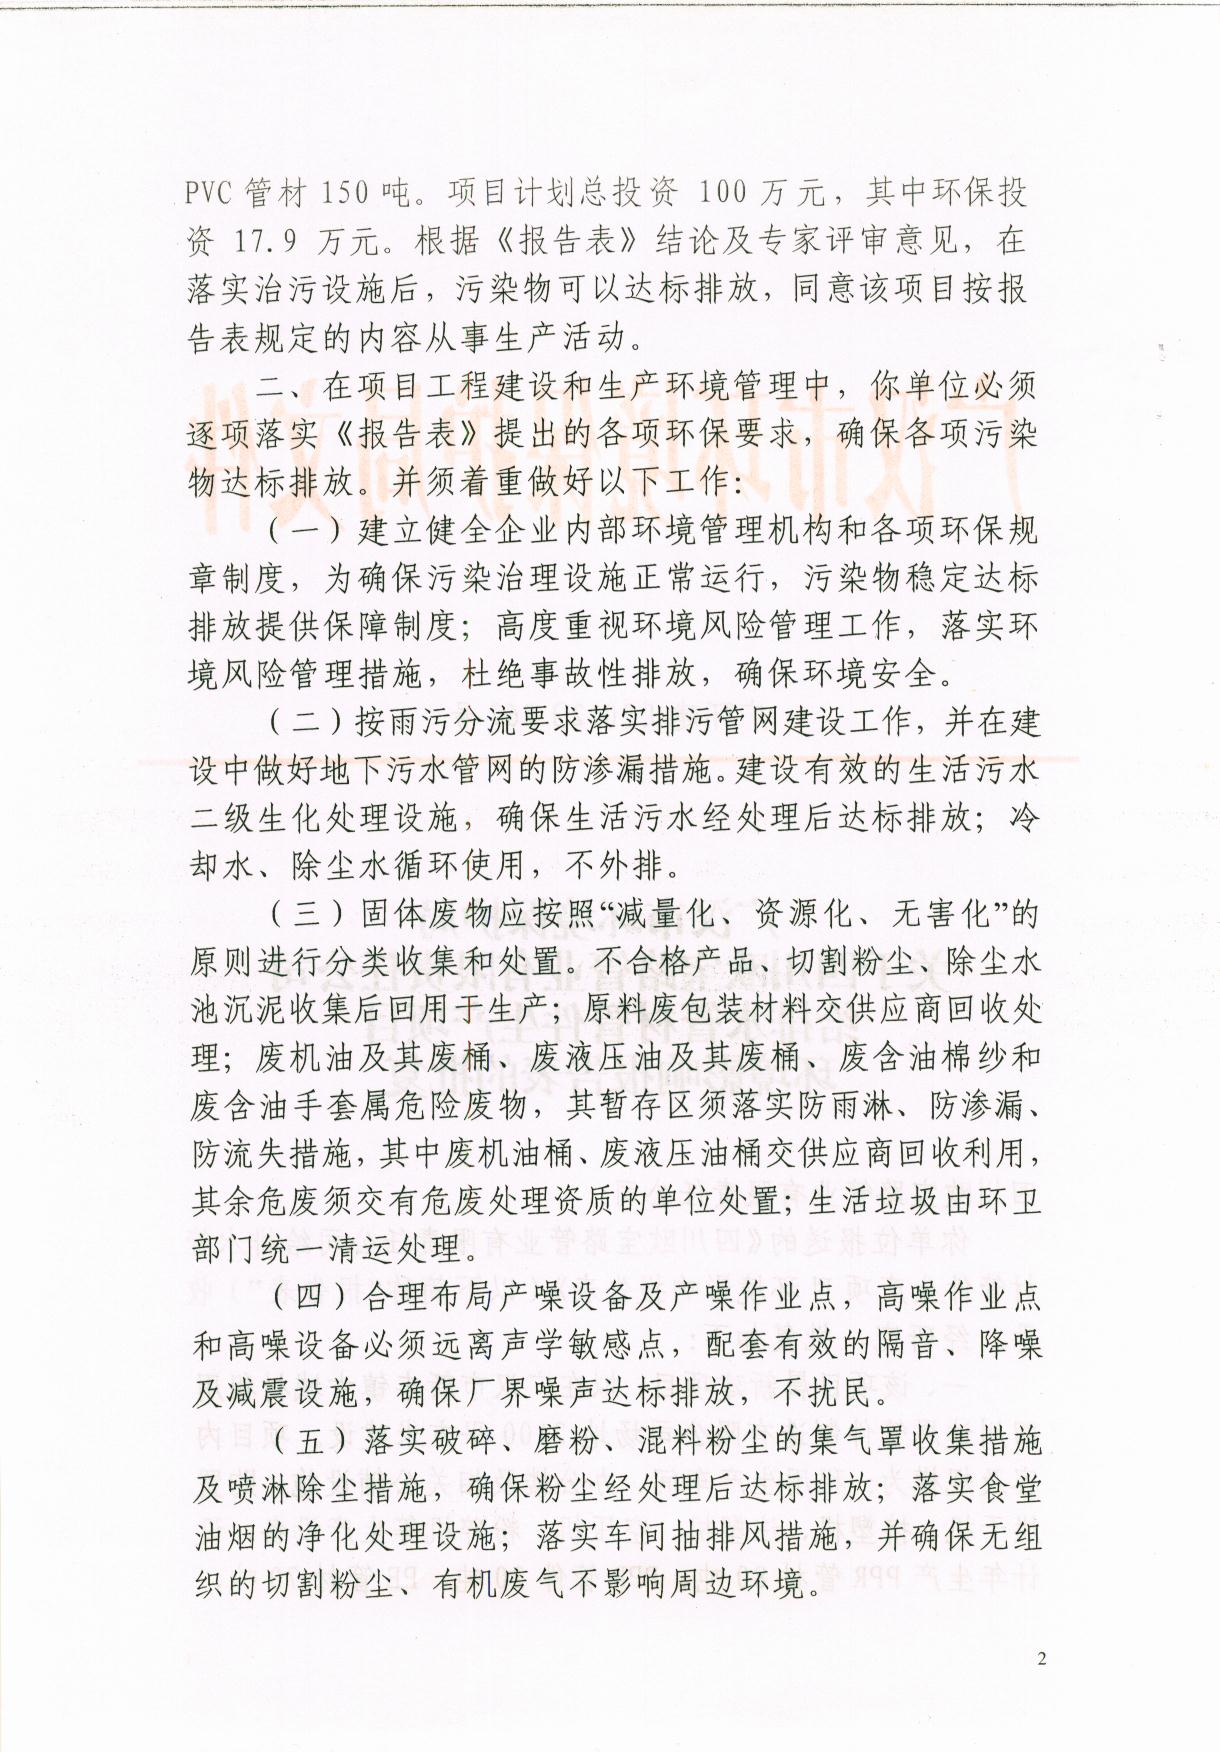 PVC 管材 150 吨。项目计划总投资 100 万元，其中环保投
资 17.9 万元。根据《报告表》结论及专家评审意见，在
落实治污设施后，污染物可以达标排放，同意该项目按报
告表规定的内容从事生产活动。
二、在项目工程建设和生产环境管理中，你单位必须
逐项落实《报告表》提出的各项环保要求，确保各项污染
物达标排放。并须着重做好以下工作：
（一）建立健全企业内部环境管理机构和各项环保规
章制度，为确保污染治理设施正常运行，污染物稳定达标
排放提供保障制度；高度重视环境风险管理工作，落实环
境风险管理措施，杜绝事故性排放，确保环境安全。
（二）按雨污分流要求落实排污管网建设工作，并在建
设中做好地下污水管网的防渗漏措施。建设有效的生活污水
二级生化处理设施，确保生活污水经处理后达标排放；冷
却水、除尘水循环使用，不外排。
（三）固体废物应按照“减量化、资源化、无害化”的
原则进行分类收集和处置。不合格产品、切割粉尘、除尘水
池沉泥收集后回用于生产；原料废包装材料交供应商回收处
理；废机油及其废桶、废液压油及其废桶、废含油棉纱和
废含油手套属危险废物，其暂存区须落实防雨淋、防渗漏、
防流失措施，其中废机油桶、废液压油桶交供应商回收利用，
其余危废须交有危废处理资质的单位处置；生活垃圾由环卫
部门统一清运处理。
（四）合理布局产噪设备及产噪作业点，高噪作业点
和高噪设备必须远离声学敏感点，配套有效的隔音、降噪
及减震设施，确保厂界噪声达标排放，不扰民。
（五）落实破碎、磨粉、混料粉尘的集气罩收集措施
及喷淋除尘措施，确保粉尘经处理后达标排放；落实食堂
油烟的净化处理设施；落实车间抽排风措施，并确保无组
织的切割粉尘、有机废气不影响周边环境。
2